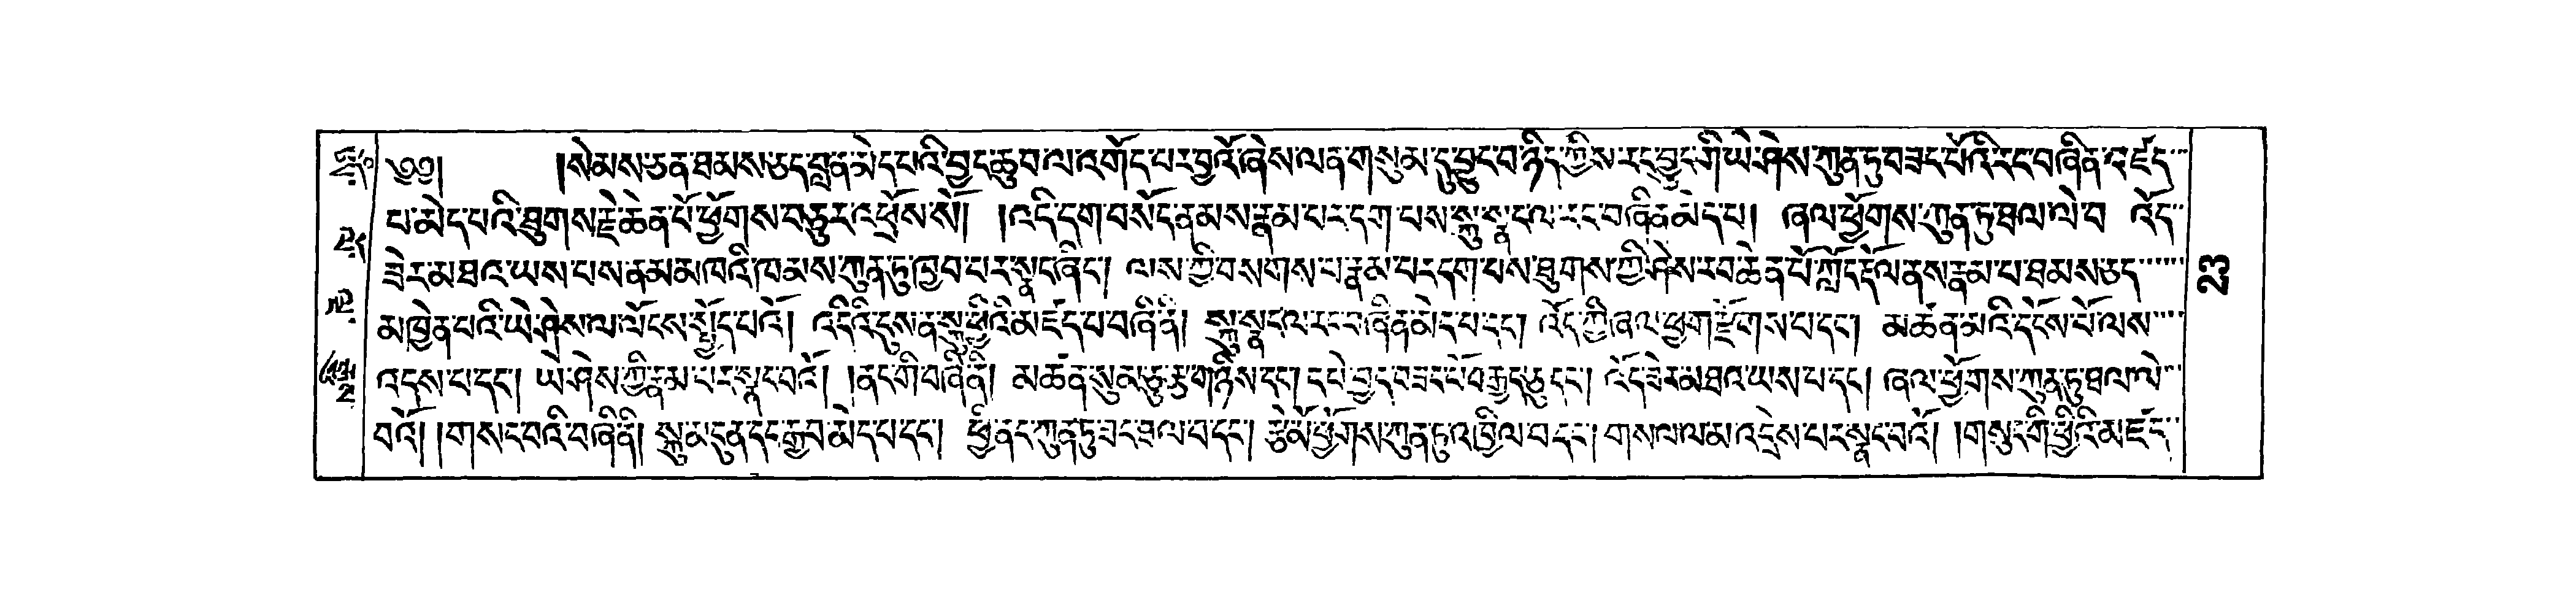 ༄༅། །སེམས་ཅན་ཐམས་ཅད་བླ་ན་མེད་པའི་བྱང་ཆུབ་ལ་འགོད་པར་བྱའོ་ཞེས་ལན་གསུམ་དུ་བྱུང་བ་ཉིད་ཀྱིས་རང་བྱུང་གི་ཡེ་ཤེས་ཀུན་ཏུ་བཟང་པོའི་རང་བཞིན་བརྗོད་
པ་མེད་པའི་ཐུགས་རྗེ་ཆེན་པོ་ཕྱོགས་བཅུར་འཕྲོས་སོ། །འདི་དག་བསོད་ནམས་རྣམ་པར་དག་པས་སྐུ་སྣང་ལ་རང་བཞིན་མེད་པ། ཞལ་ཕྱོགས་ཀུན་ཏུ་ཐལ་ལེ་བ འོད་
ཟེར་མཐའ་ཡས་པས་ནམ་མཁའི་ཁམས་ཀུན་ཏུ་ཁྱབ་པར་སྣང་ཞིང། ལས་ཀྱི་བསགས་པ་རྣམ་པར་དག་པས་ཐུགས་ཀྱི་ཤེས་རབ་ཆེན་པོ་ཀློང་རྡོལ་ནས་རྣམ་པ་ཐམས་ཅད་
མཁྱེན་པའི་ཡེ་ཤེས་ལ་ལོངས་སྤྱོད་པའོ། འདིའི་དུས་ན་སྐུ་ཕྱིའི་མཛད་པ་བཞི་ནི། སྐུ་སྣང་ལ་རང་བཞིན་མེད་པ་དང། འོད་ཀྱི་ཞལ་ཕྱག་རྫོགས་པ་དང། མཚན་མའི་དངོས་པོ་ལས་
འདས་པ་དང། ཡེ་ཤེས་ཀྱི་རྣམ་པར་སྣང་བའོ། །ནང་གི་བཞི་ནི། མཚན་སུམ་ཅུ་རྩ་གཉིས་དང། དཔེ་བྱད་བཟང་པོ་བརྒྱད་ཅུ་དང། འོད་ཟེར་མཐའ་ཡས་པ་དང། ཞལ་ཕྱོགས་ཀུན་ཏུ་ཐལ་ལེ་
བའོ། །གསང་བའི་བཞི་ནི། སྐུ་མདུན་དང་རྒྱབ་མེད་པ་དང། ཕྱི་ནང་ཀུན་ཏུ་ཟང་ཐལ་བ་དང། རྩེ་མོ་ཕྱོགས་ཀུན་ཏུ་འཁྱིལ་བ་དང། གསལ་ལ་མ་འདྲེས་པར་སྣང་བའོ། །གསུང་གི་ཕྱིའི་མཛད་